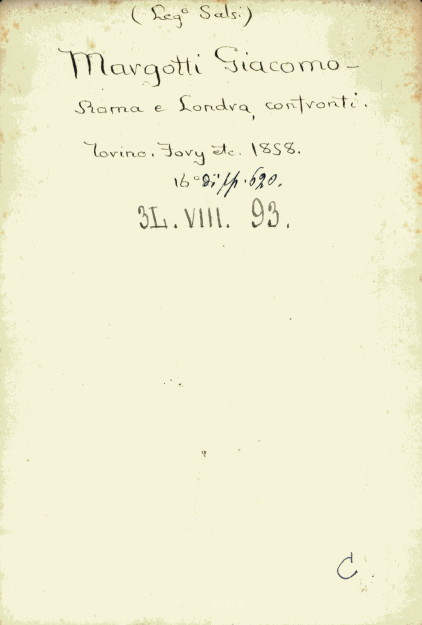 (Leg.º Salsi)
Margotti Giacomo –
Roma e Londra, confronti.
Torino. Fory etc. 1858.
16º di pp. 620.
3L. VIII. 93.
C